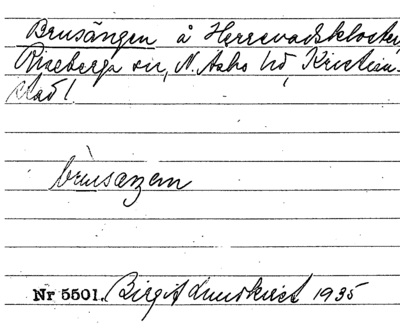 Brusängen å Herrevadskloster,
Riseberga sn, N. Åsbo hd, Kristian-
stad l.
brusaŋen
Nr 5501. Birgit Lundkvist 1935